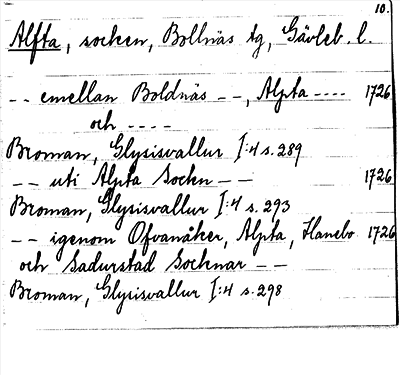 10.
Alfta, socken, Bollnäs tg, Gävleb. l.
-- emellan Boldnäs --, Alpta ---- 1726
och ----
Broman, Glysisvallur I:4 s. 289
-- uti Alpta Sockn -- 1726
Broman, Glysisvallur I:4 s. 293
-- igenom Ofvanåker, Alpta, Hanebo 1726
och Sadurstad Socknar --
Broman, Glysisvallur I:4 s. 298